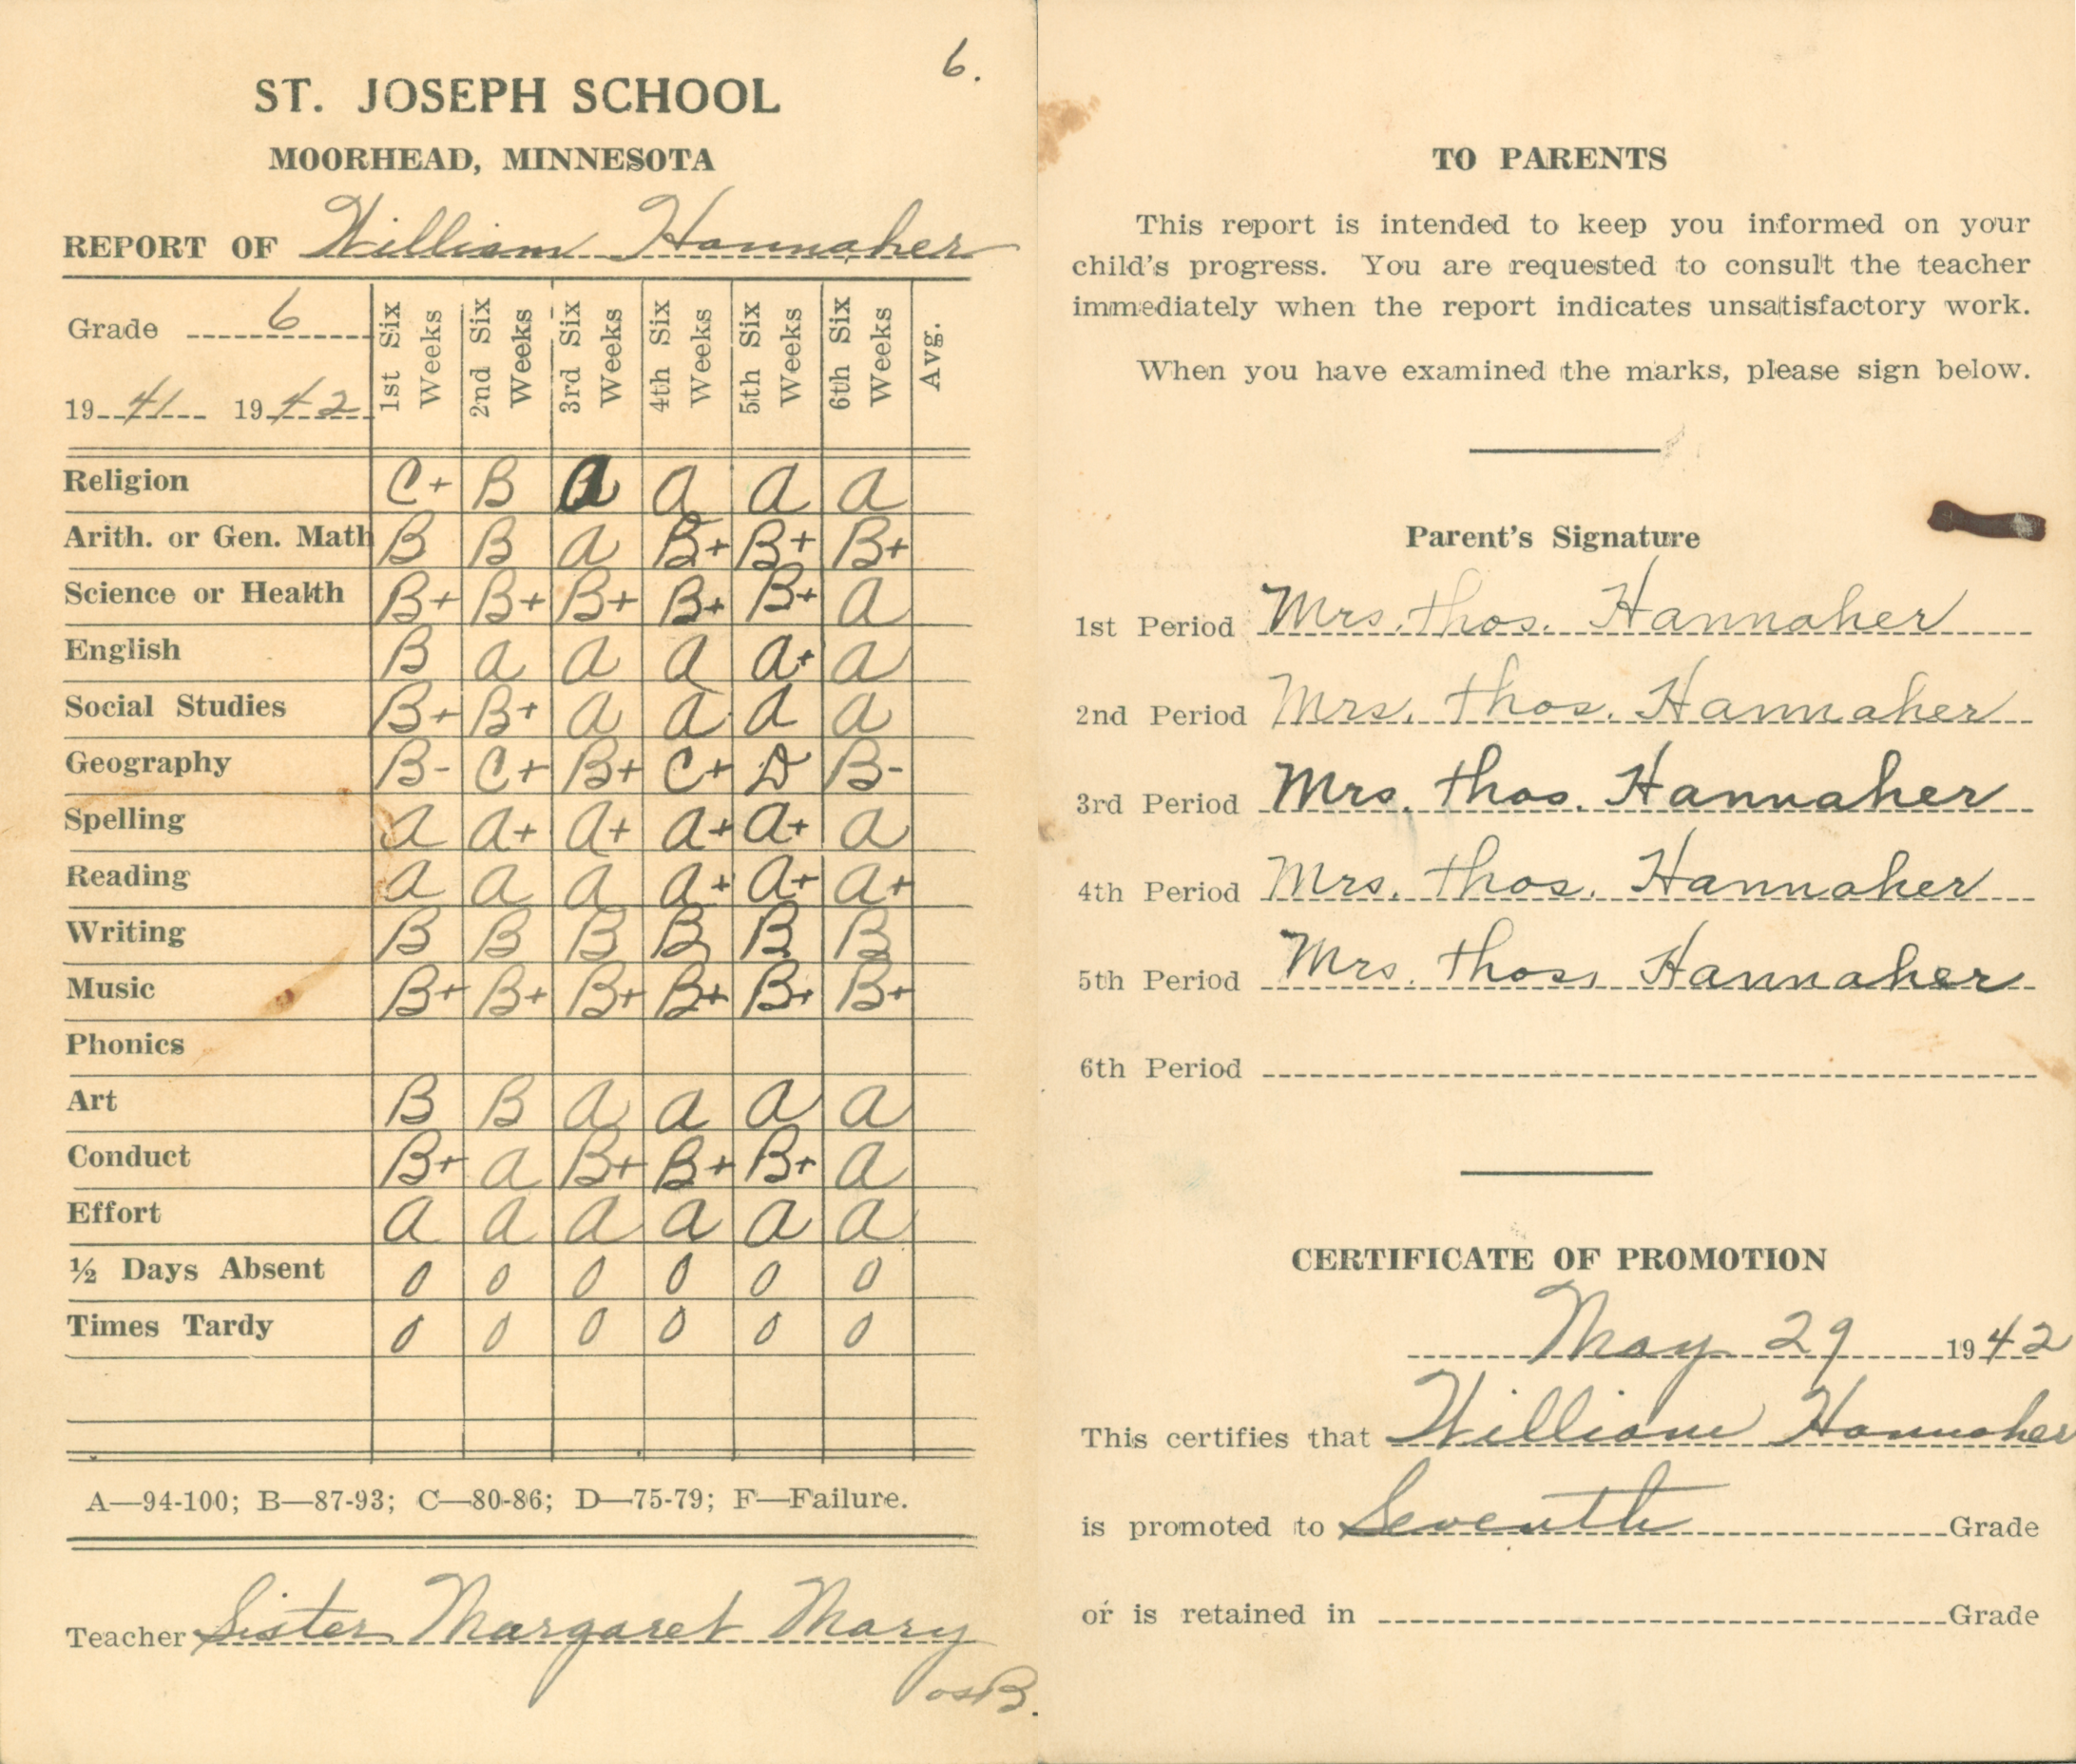 6.
ST. JOSEPH SCHOOL
MOORHEAD, MINNESOTA
REPORT OF William Hannaher
Grade 6
1941 1942
1st Six Weeks 2nd Six Weeks 3rd Six Weeks 4th Six Weeks 5th Six Weeks 6th Six Weeks Avg.
Religion C+ B A A A A
Arith. or Gen. Math B B A B+ B+ B+
Science or Health B+ B+ B+ B+ B+ A
English B A A A A+ A
Social Studies B+ B+ A A A A
Geography B- C+ B+ C+ D B-
Spelling A A+ A+ A+ A+ A
Reading A A A A+ A+ A+
Writing B B B B B B
Music B+ B+ B+ B+ B+ B+
Phonics
Art B B A A A A
Conduct B+ A B+ B+ B+ A
Effort A A A A A A
½ Days Absent 0 0 0 0 0 0
Times Tardy 0 0 0 0 0 0
A—94-100; B—87-93; C—80-86; D—75-79; F—Failure.
Teacher Sister Margaret Mary
OSB.
TO PARENTS
This report is intended to keep you informed on your
child's progress. You are requested to consult the teacher
immediately when the report indicates unsatisfactory work.
When you have examined the marks, please sign below.
Parent's Signature
1st Period Mrs. Thos. Hannaher
2nd Period Mrs. Thos. Hannaher
3rd Period Mrs. Thos. Hannaher
4th Period Mrs. Thos. Hannaher
5th Period Mrs. Thos. Hannaher
6th Period
CERTIFICATE OF PROMOTION
May 29 1942
This certifies that William Hannaher
is promoted to Seventh Grade
or is retained in Grade